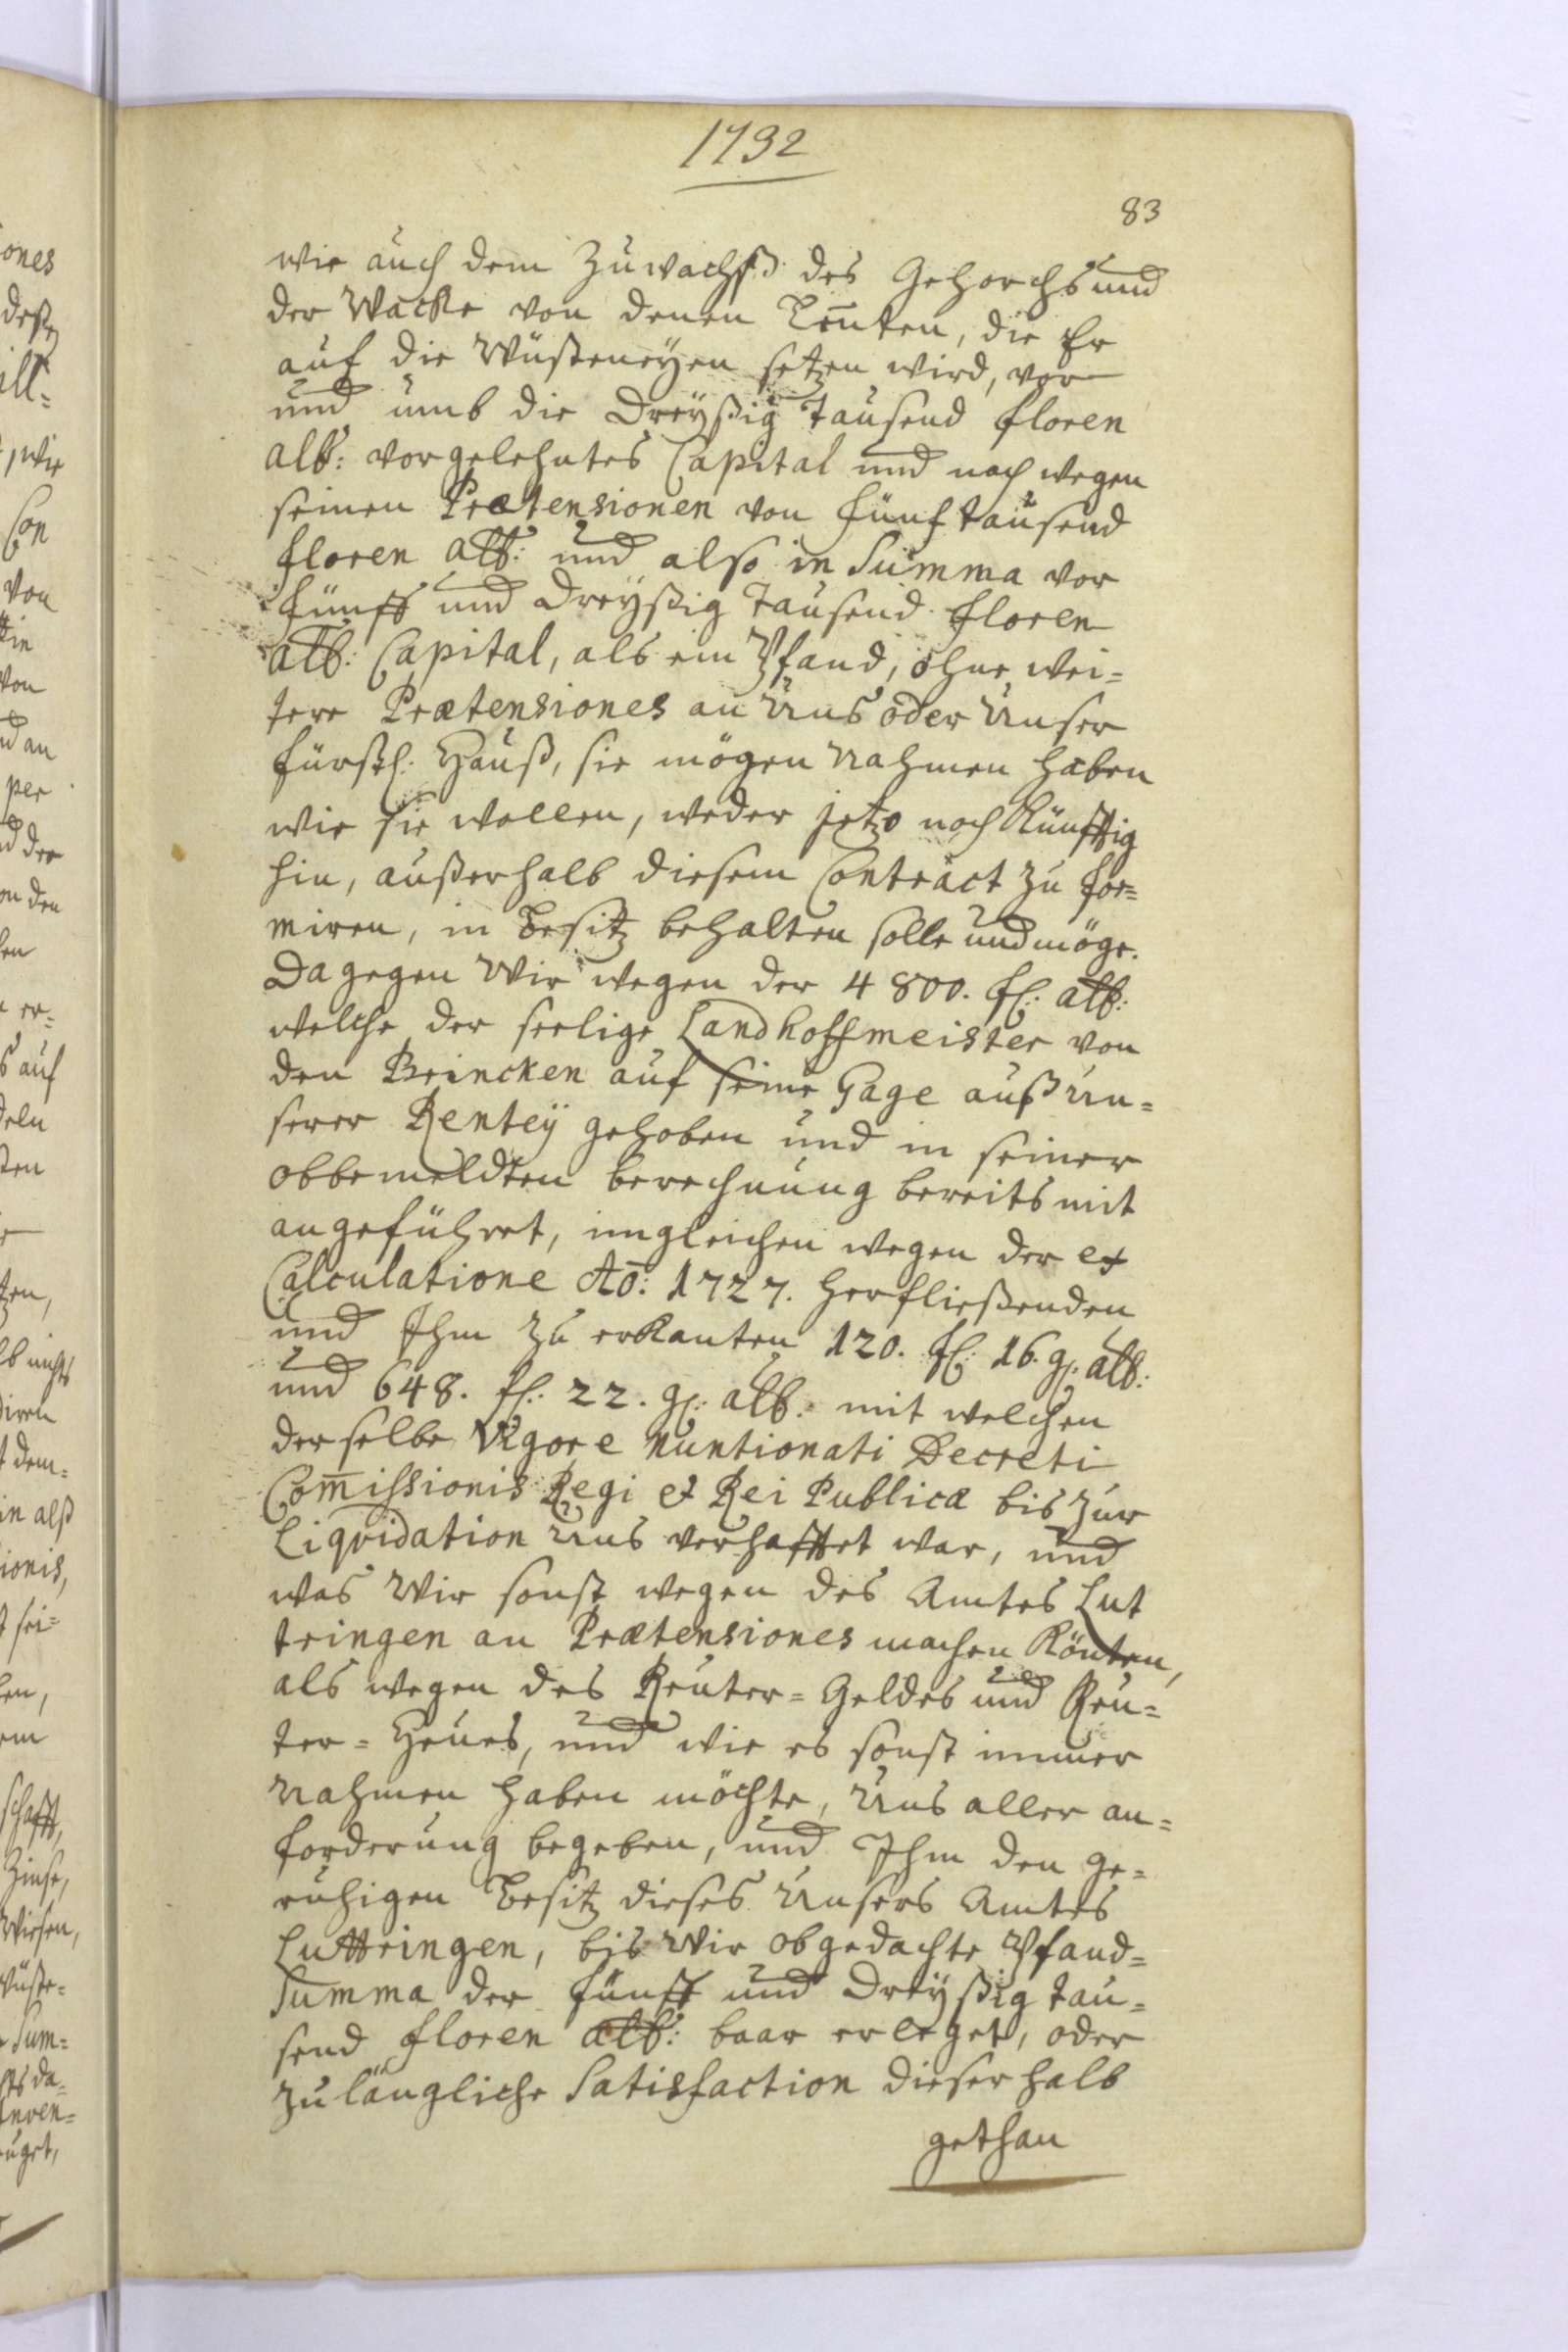 1732
83
wie auch dem Zuwachß des Gehorchs und
der Wacke von denen Leuten, die Er
auf die Wüsteneyen setzen wird, vor
und umb die Dreyßig Tausend floren
alb: vorgelehntes Capital und noch wegen
seinen Prætensionen von Fünf tausend
floren alb: und also in Summa vor
Fünff und Dreyßig Tausend floren
alb: Capital, als ein Pfand, ohne wei=
tere Prætensiones an Uns oder Unser
Fürstl: Hauß, sie mögen Nahmen haben
wie sie wollen, weder jetzo noch Künfftig
hin, außerhalb diesem Contract zu for=
miren, in Besitz behalten solle und möge.
Dagegen Wir wegen der 4800. fl: alb:
welche der seelige Landhoffmeister von
den Brincken auf seine Gage auß Un=
serer Rentey gehoben und in seiner
obbemeldten berechnung bereits mit
angeführet, imgleichen wegen der ex
Calculatione Ao: 1727. herfließenden
und Ihm zu erkanten 120. fl: 16. g: alb:
und 648. fl: 22. g: alb: mit welchen
derselbe Vigore nuntionati Decreti
Comissionis Regi et Rei Publicæ bis zur
Liqvidation Uns verhafftet war, und
was Wir sonst wegen des Amtes Lut
tringen an Prætensiones machen Könten,
als wegen des Reuter=Geldes und Reu=
ter=Heues, und wie es sonst immer
Nahmen haben möchte, Uns aller an=
forderung begeben, und Ihm den ge=
ruhigen Besitz dieses Unsers Amtes
Luttringen, bis Wir obgedachte Pfand=
Summa der Fünff und Dreyßig tau=
send floren alb: baar erleget, oder
zulängliche Satisfaction dieserhalb
gethan